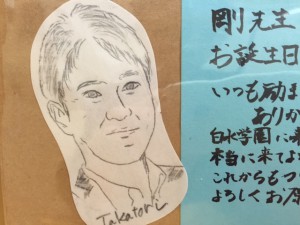 剛先生
お誕生日
いつも励ま
ありか
白水学園に
本当に来てよ
これからもつ
よろしくお
Takatori